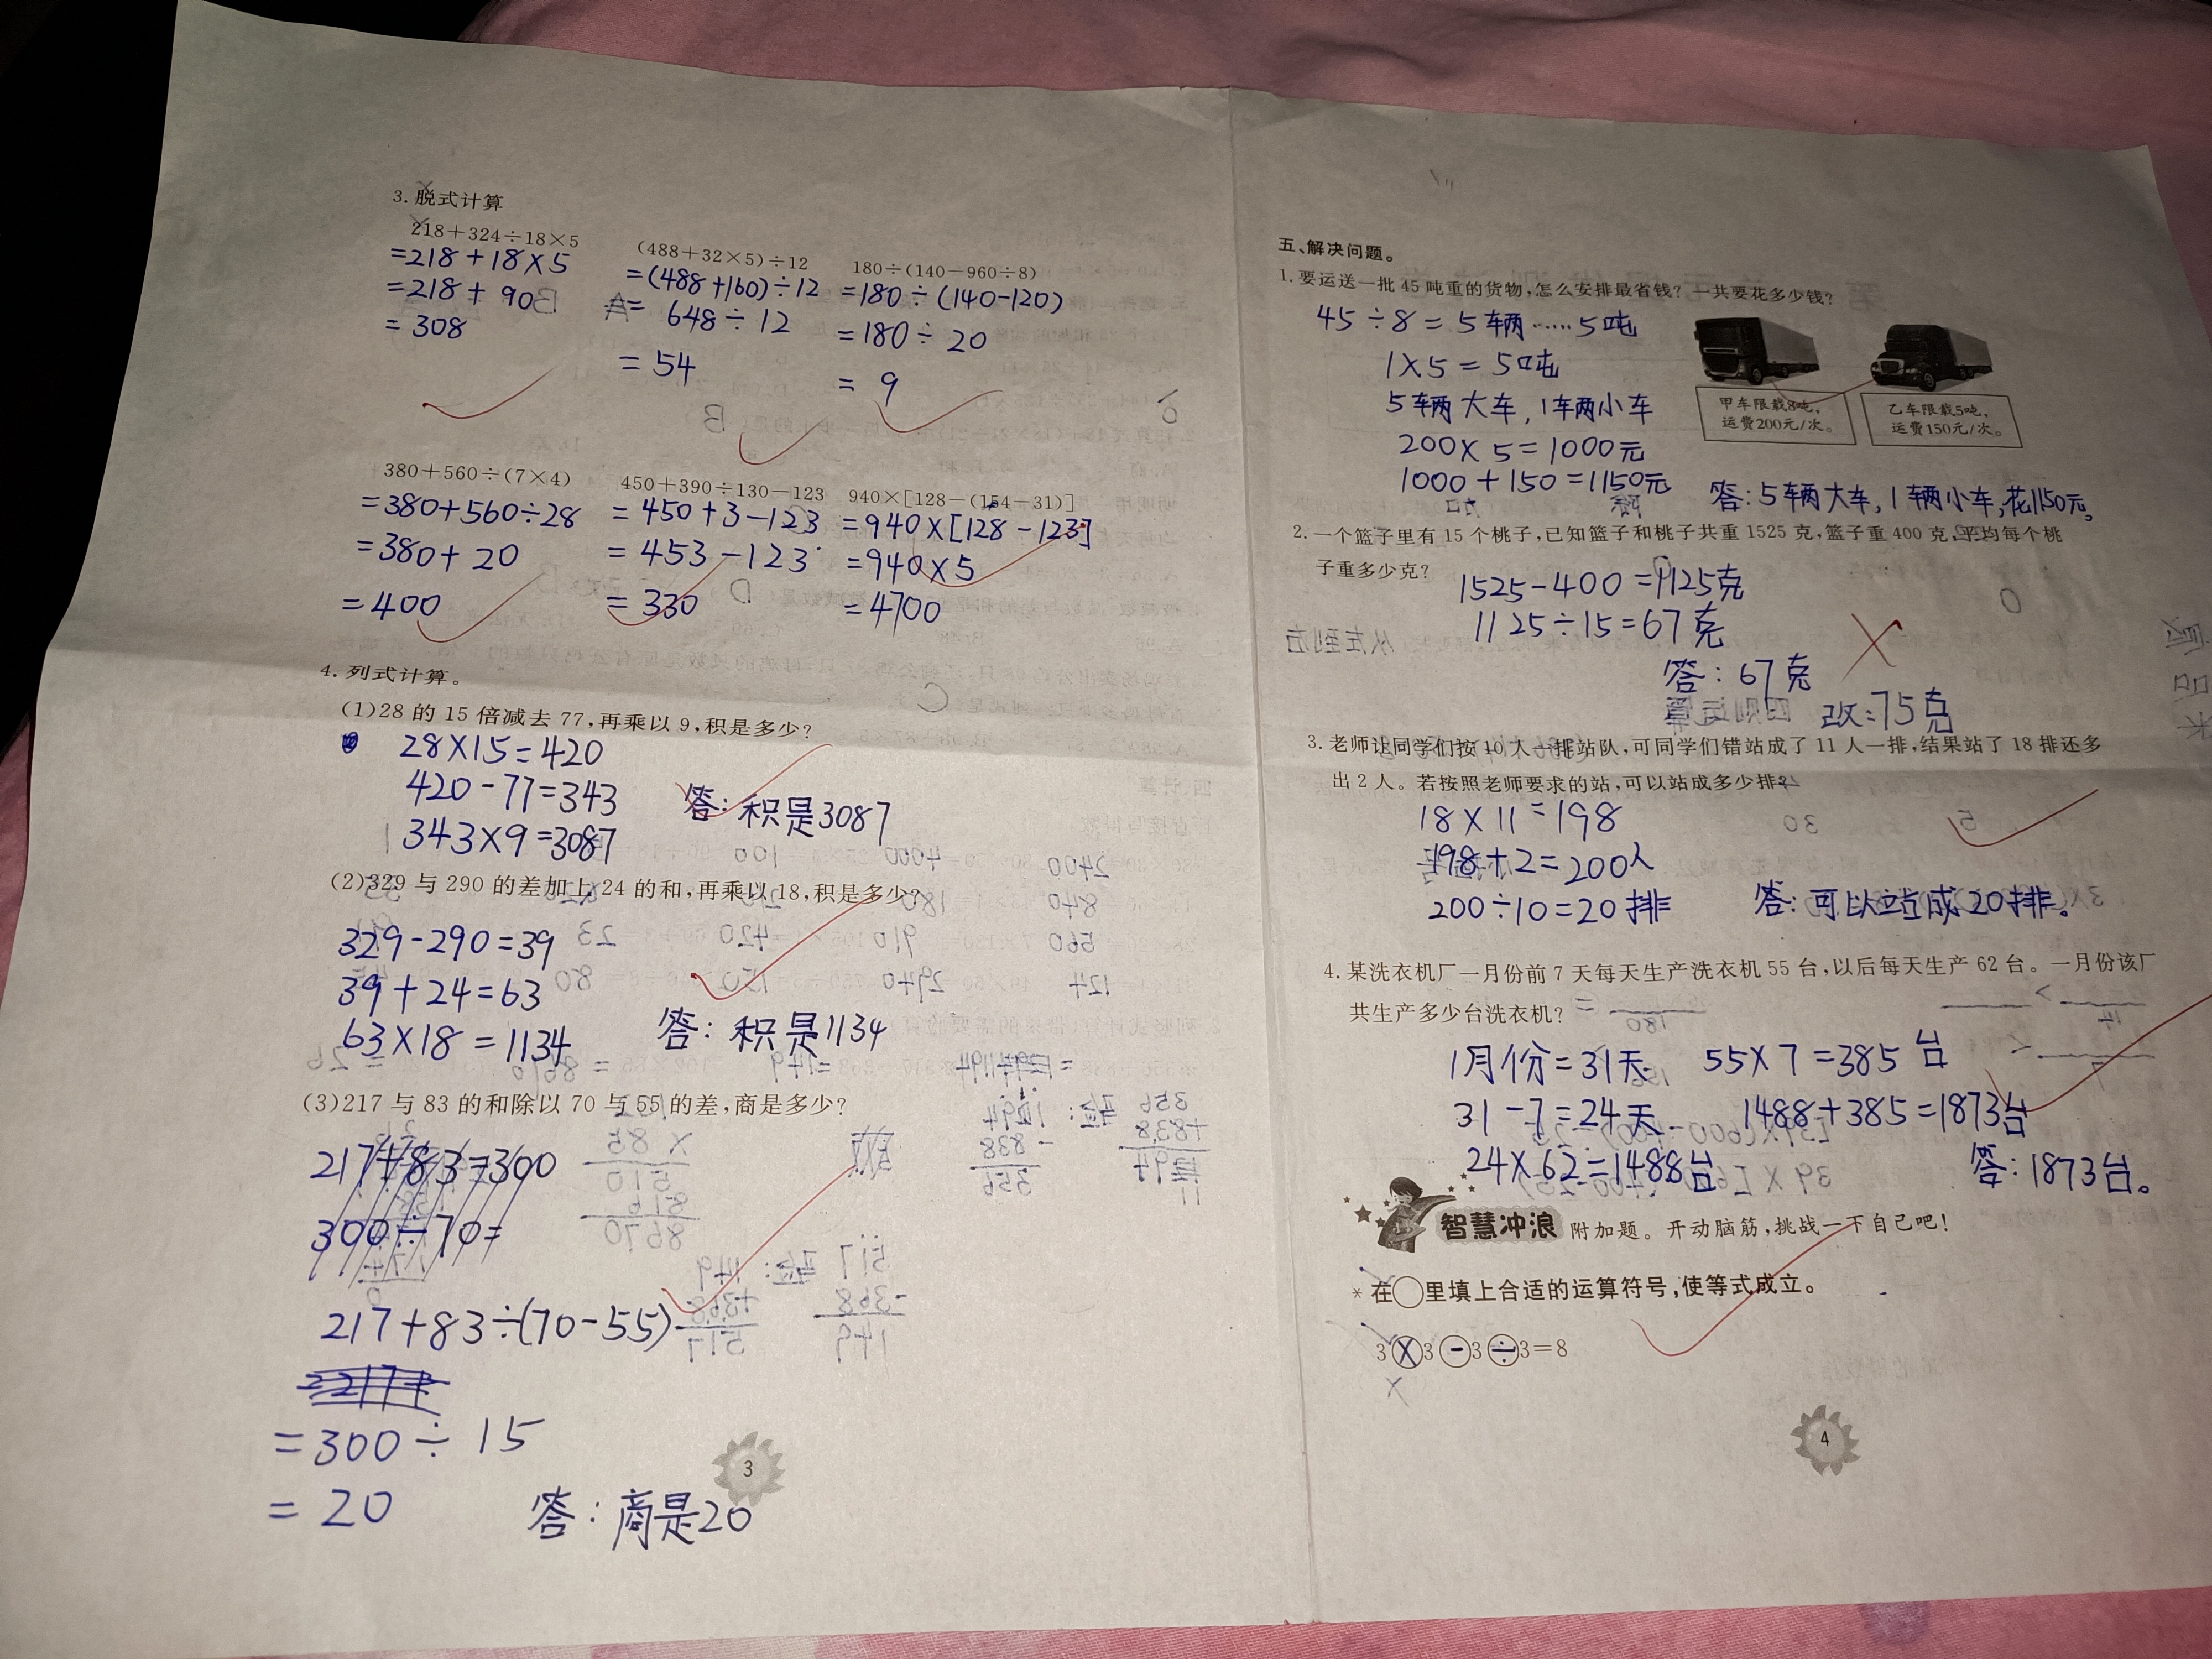 3. 脱式计算
218+324÷18×5
=218+18×5
=218+90
=308
(488+32×5)÷12
=(488+160)÷12
= 648÷12
=54
180÷(140-960÷8)
=180÷(140-120)
=180÷20
= 9
380+560÷(7×4)
=380+560÷28
=380+20
=400
450+390÷130-123
=450+3-123
=453-123
=330
940×[128-(154-31)]
=940×[128-123]
=940×5
=4700
4. 列式计算。
(1)28 的 15 倍减去 77,再乘以 9,积是多少?
28×15=420
420-77=343
343×9=3087
答:积是3087
(2)329 与 290 的差加上 24 的和,再乘以 18,积是多少?
329-290=39
39+24=63
63×18=1134
答:积是1134
(3)217 与 83 的和除以 70 与 55 的差,商是多少?
217+83=300
300÷70=
217+83÷(70-55)
=300÷15
=20
答:商是20
3
五、解决问题。
1. 要运送一批 45 吨重的货物,怎么安排最省钱? 一共要花多少钱?
45÷8=5辆……5吨
1×5=5吨
5辆大车,1辆小车
200×5=1000元
1000+150=1150元
甲车限载8吨,
运费200元/次。
乙车限载5吨,
运费150元/次。
答:5辆大车,1辆小车,花1150元。
2. 一个篮子里有 15 个桃子,已知篮子和桃子共重 1525 克,篮子重 400 克,平均每个桃
子重多少克?
1525-400=1125克
1125÷15=67克
答:67克
改:75克
3. 老师让同学们按 10 人一排站队,可同学们错站成了 11 人一排,结果站了 18 排还多
出 2 人。若按照老师要求的站,可以站成多少排?
18×11=198
198+2=200人
200÷10=20排
答:可以站成20排。
4. 某洗衣机厂一月份前 7 天每天生产洗衣机 55 台,以后每天生产 62 台。一月份该厂
共生产多少台洗衣机?
1月份=31天 55×7=385台
31-7=24天 1488+385=1873台
24×62=1488台
答:1873台。
智慧冲浪 附加题。开动脑筋,挑战一下自己吧!
* 在○里填上合适的运算符号,使等式成立。
3×3-3÷3=8
4